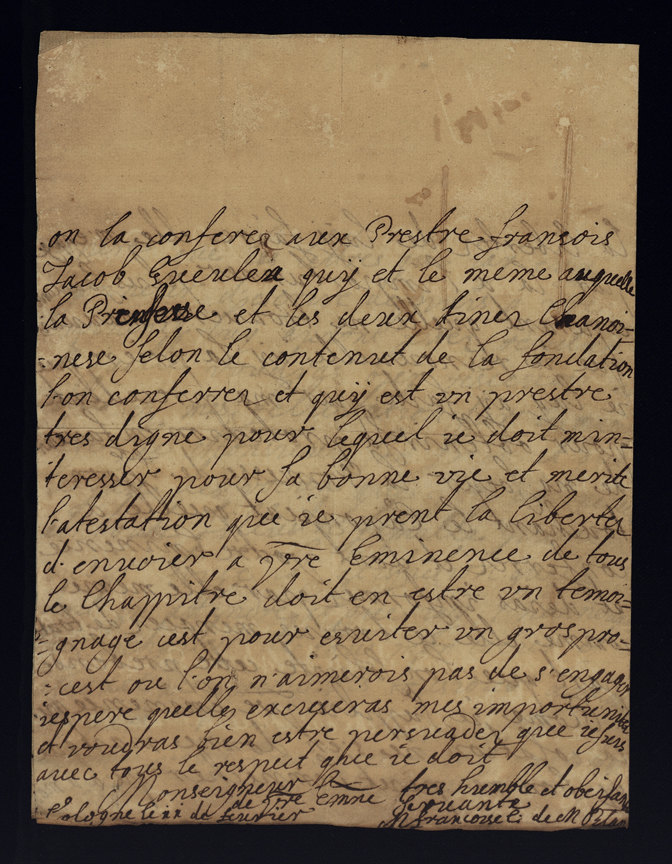 on la conferer aux Prestre fransois
Jacob quÿ et le meme auquelle
la et les deux Chanoi-
-nese selon le contenut de la fondation
l'on conferrer et quÿ est vn prestre
tres digne pour lequel ie doit min=
teresser pour sa bonne vie et merite
l'atestation que ie prent la liberter
d'envoier a vre Eminence de tous
le Chappitre doit en estre vn temoi=
=gnage cest pour esuiter vn gros pro=
=cest ou l'on n'aimerois pas de s'engager
iespere quelle excuseras mes importunite
et voudras bien estre persuader que ie suis
avec tous le respect que ie doit
Monseigneur
de vre Emne tres humble et obeisan
Cologne le 11 de feurier seruante